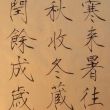 寒来暑往
秋收冬藏
閏餘成歲